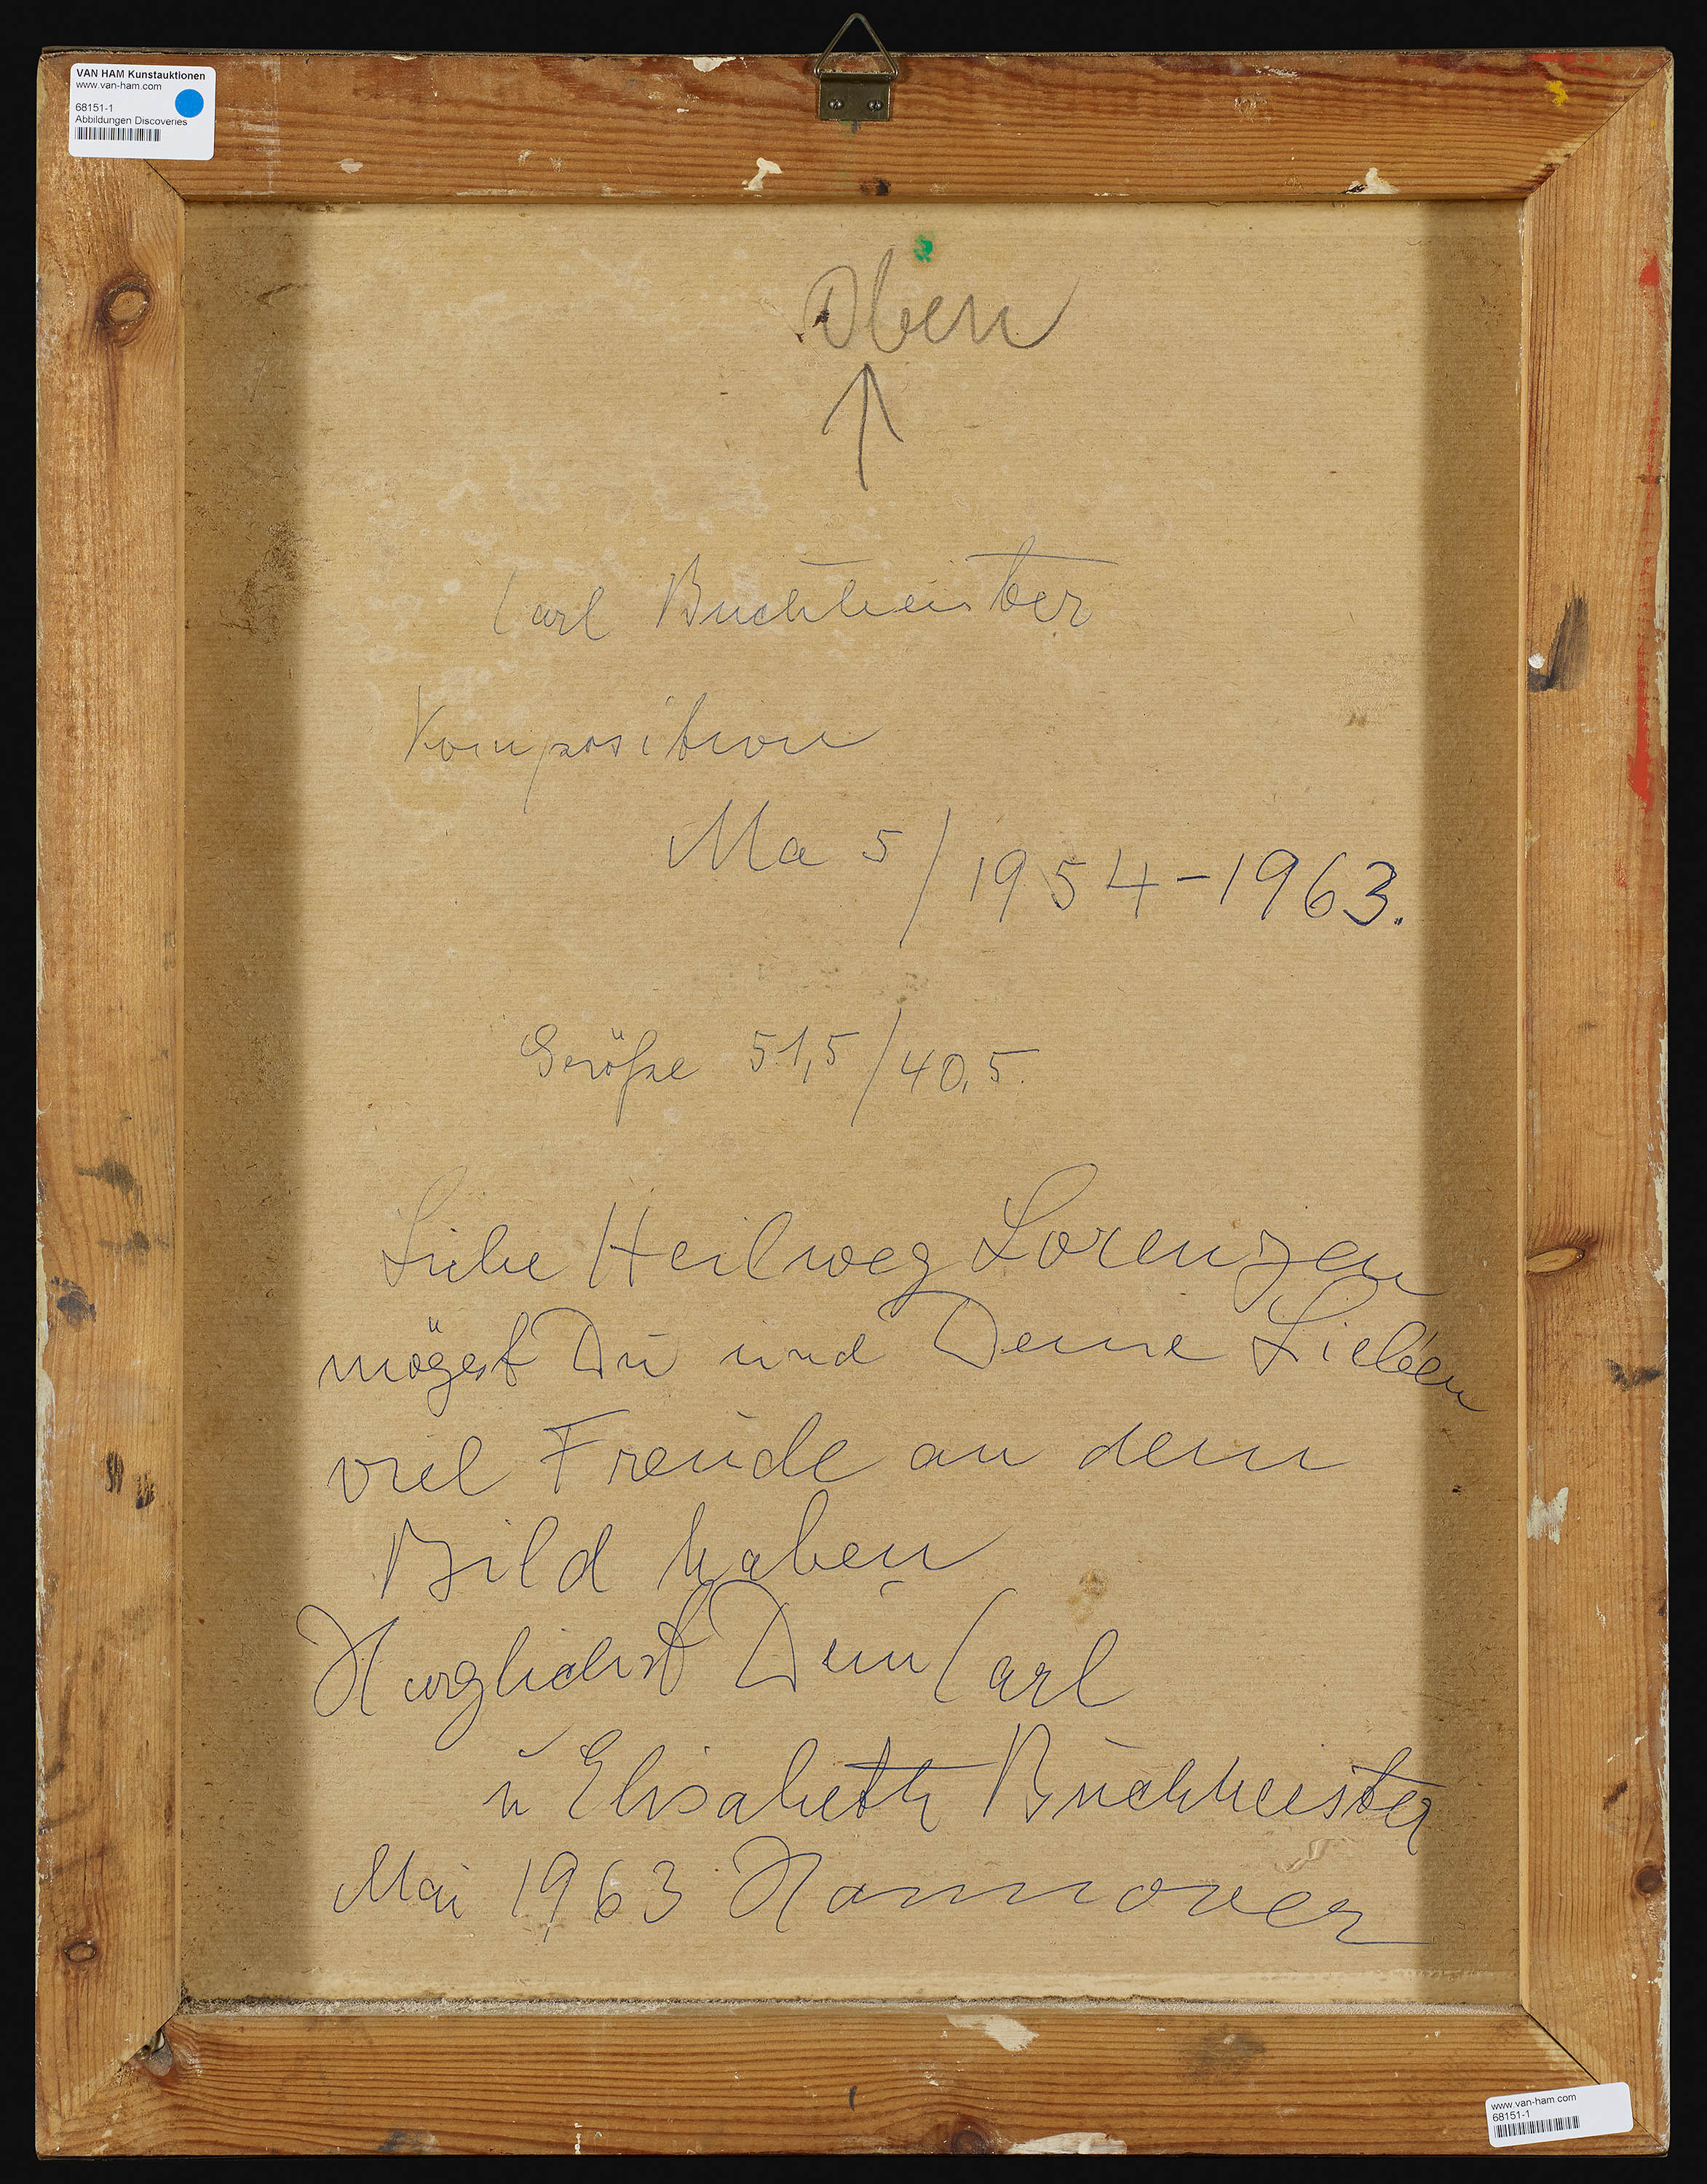 VAN HAM Kunstauktionen
www.van-ham.com
68151-1
Abbildungen Discoveries
Oben
Carl Buchheister
Komposition
Ma 5/1954-1963.
Größe 51,5/40,5.
Liebe Heilweg Lorenzen
mögest Du und Deine Lieben
viel Freude an dem
Bild haben
Herzlichst Dein Carl
u Elisabeth Buchheister
Mai 1963 Hannover
www.van-ham.com
68151-1